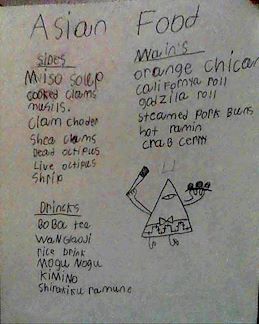 Asian Food
Sides
Miso soup
cooked clams
musils.
clam choder
Shea clams
Dead octipus
Live octipus
Shrip
Mains
orange chican
california roll
godzila roll
steamed pork buns
hot ramin
crab
Drincks
BoBa tea
WaNGlaoji
rice Drink
MoGu NoGu
KiMiNo
Shirakiku ramune